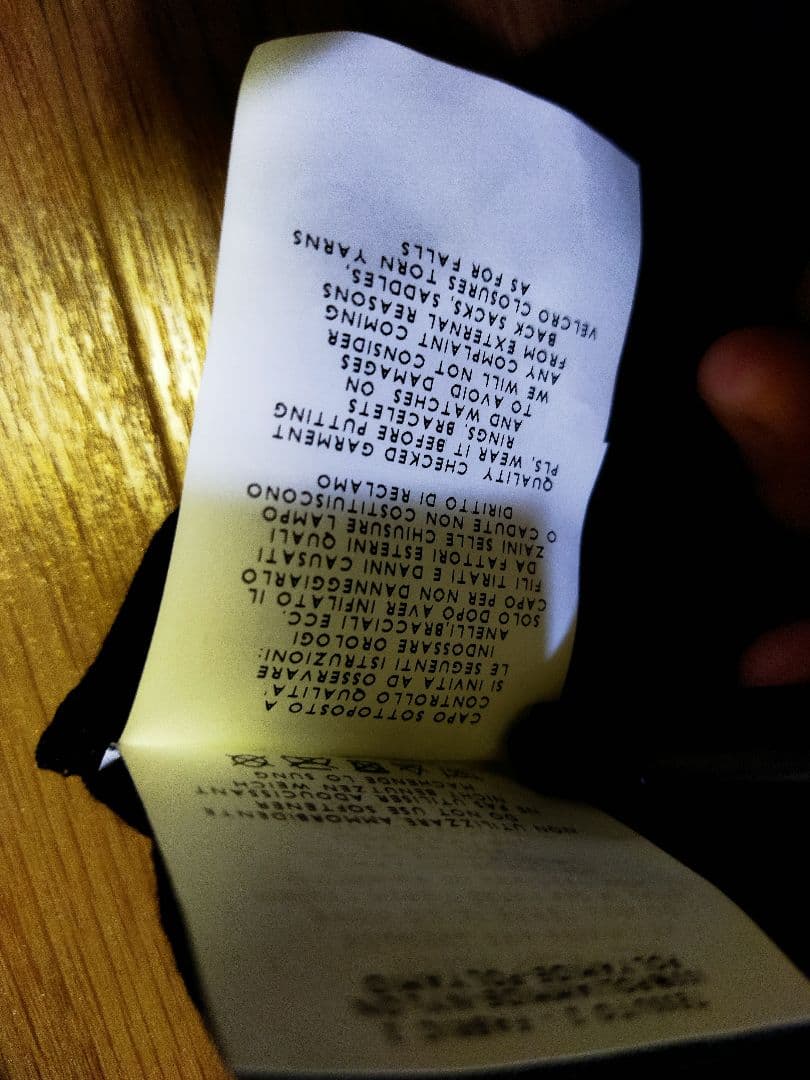 NON UTILIZZARE AMMORBIDENTE
DO NOT USE SOFTENER
NE PAS UTILISER ADOUCISSANT
BENUTZEN WEICH
LO SUNG
CAPO SOTTOPOSTO A
CONTROLLO QUALITA'
SI INVITA AD OSSERVARE
LE SEGUENTI ISTRUZIONI:
INDOSSARE OROLOGI
ANELLI,BRACCIALI ECC.
SOLO DOPO AVER INFILATO IL
CAPO PER NON DANNEGGIARLO
FILI TIRATI E DANNI CAUSATI
DA FATTORI ESTERNI QUALI
ZAINI SELLE CHIUSURE LAMPO
O CADUTE NON COSTITUISCONO
DIRITTO DI RECLAMO
QUALITY CHECKED GARMENT
PLS, WEAR IT BEFORE PUTTING
RINGS, BRACELETS
AND WATCHES ON
TO AVOID DAMAGES
WE WILL NOT CONSIDER
ANY COMPLAINT COMING
FROM EXTERNAL REASONS
BACK SACKS, SADDLES,
VELCRO CLOSURES TORN YARNS
AS FOR FALLS